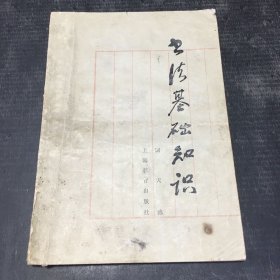 书法基础知识
上海教育出版社